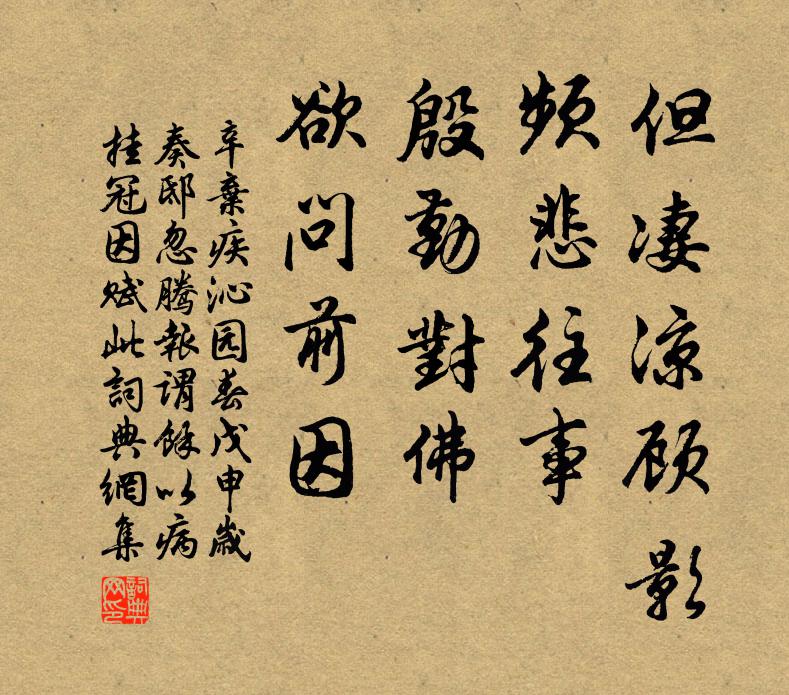 但凄涼顾影
頻悲往事
殷勤對佛
欲問前因
辛棄疾沁园春戊申歲
奏邸忽騰報谓餘以病
挂冠因赋此詞典網集
詞典网印